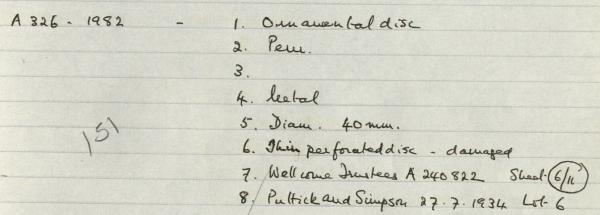 A 326 - 1982 - 1. Ornamental disc
2. Peru.
3.
4. Metal
5. Diam. 40 mm.
6. Thin perforated disc - damaged
151
7. Wellcome Trustees A 240822 Sheet 6/11
8. Puttick and Simpson 27.7.1934 Lot 6